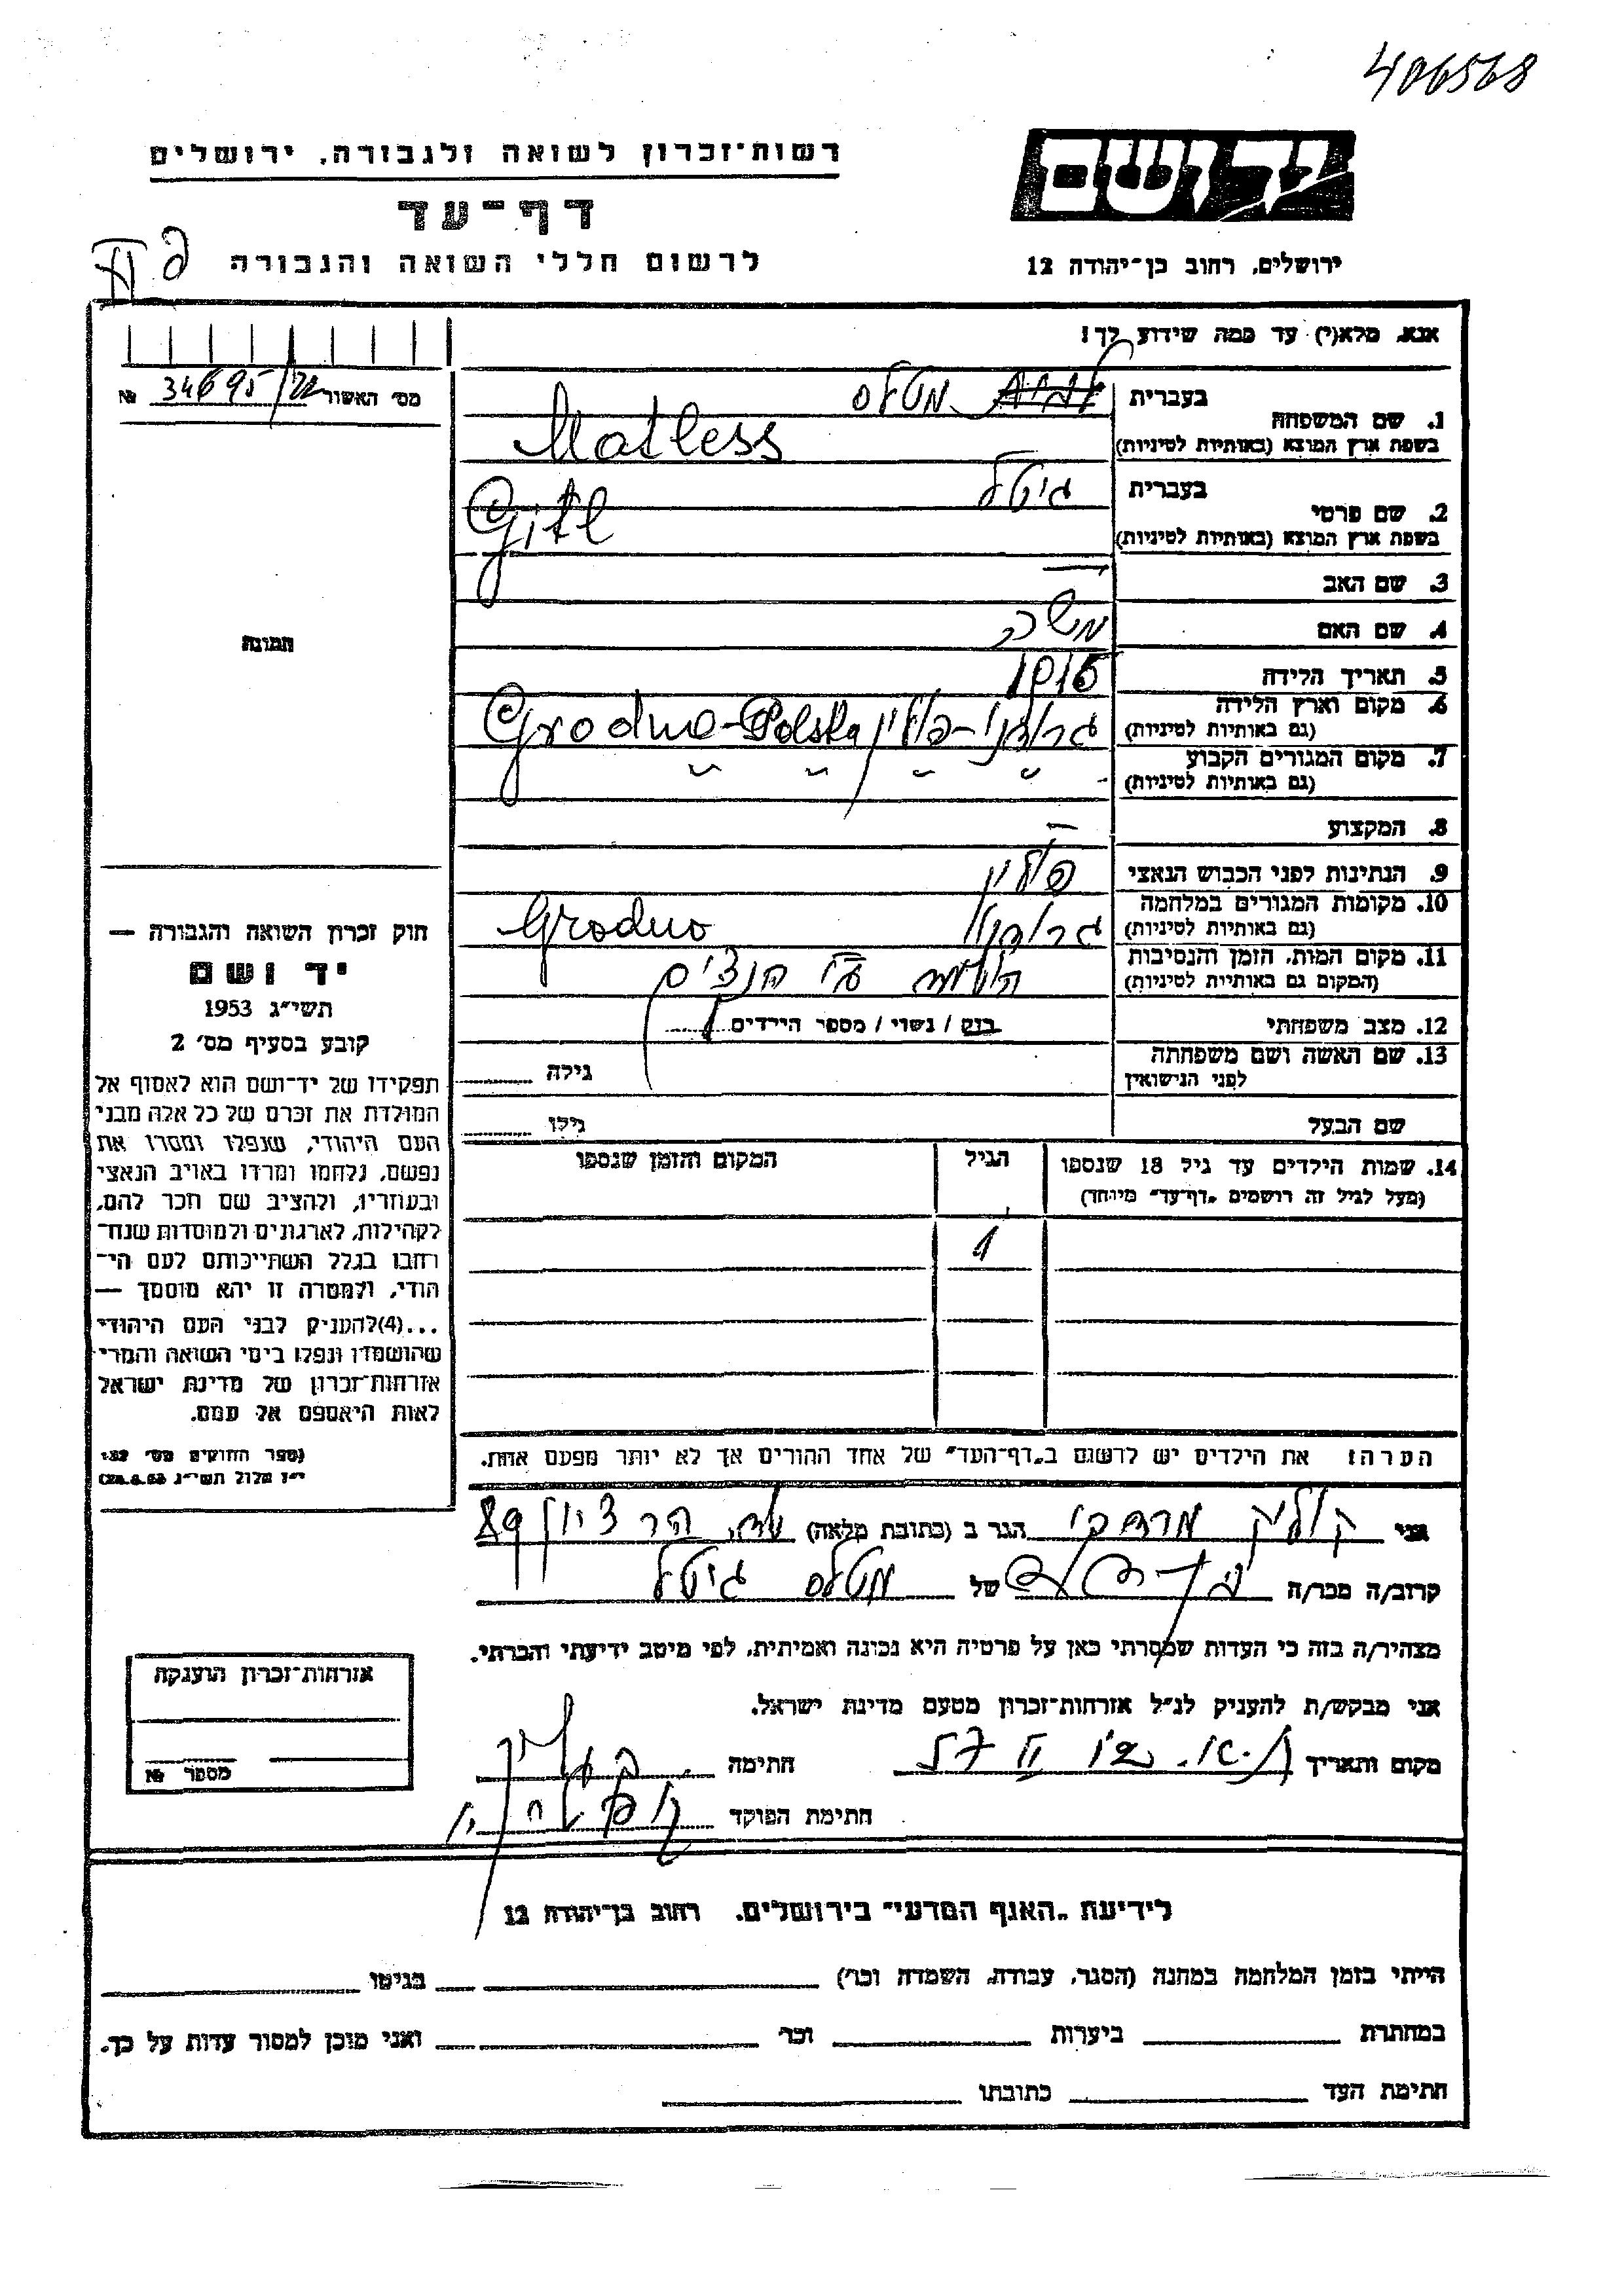 406568
רשות־זכרון לשואה ולגבורה, ירושלים
יד ושם
דף־עד
לרשום חללי השואה והגבורה
ירושלים, רחוב בן־יהודה 12
אנא, מלא(י) עד כמה שידוע לך!
מס׳ האשור 34695/22 №
1. שם המשפחה
בעברית מטלס
בשפת ארץ המוצא (באותיות לטיניות) Matless
2. שם פרטי
בעברית גיטל
בשפת ארץ המוצא (באותיות לטיניות) Gitl
3. שם האב —
4. שם האם משה
תמונה
5. תאריך הלידה 1915
6. מקום וארץ הלידה
(גם באותיות לטיניות) גרודנו-פולין Grodno-Polska
7. מקום המגורים הקבוע
(גם באותיות לטיניות) " " " "
8. המקצוע —
9. הנתינות לפני הכבוש הנאצי פולין
10. מקומות המגורים במלחמה
(גם באותיות לטיניות) גרודנו Grodno
11. מקום המות, הזמן והנסיבות
(המקום גם באותיות לטיניות) ע״י הנצים
12. מצב משפחתי רווק / נשוי / מספר הילדים 1
13. שם האשה ושם משפחתה
לפני הנישואין גילה
שם הבעל גילו
14. שמות הילדים עד גיל 18 שנספו
(מעל לגיל זה רושמים „דף־עד״ מיוחד)
הגיל
המקום והזמן שנספו
1
הערה: את הילדים יש לרשום ב„דף־העד״ של אחד ההורים אך לא יותר מפעם אחת.
חוק זכרון השואה והגבורה —
יד ושם
תשי״ג 1953
קובע בסעיף מס׳ 2
תפקידו של יד־ושם הוא לאסוף אל
המולדת את זכרם של כל אלה מבני
העם היהודי, שנפלו ומסרו את
נפשם, נלחמו ומרדו באויב הנאצי
ובעוזריו, ולהציב שם וזכר להם,
לקהילות, לארגונים ולמוסדות שנח־
רבו בגלל השתייכותם לעם הי־
הודי, ולמטרה זו יהא מוסמך —
...(4) להעניק לבני העם היהודי
שהושמדו ונפלו בימי השואה והמרי
אזרחות־זכרון של מדינת ישראל
לאות היאספם אל עמם.
(ספר החוקים מס׳ 132
י״ז אלול תשי״ג 28.8.53)
אני קולניק מרדכי הגר ב (כתובת מלאה) הר ציון 89
קרוב/ה מכר/ה של מטלס גיטל
מצהיר/ה בזה כי העדות שמסרתי כאן על פרטיה היא נכונה ואמיתית, לפי מיטב ידיעתי והכרתי.
אני מבקש/ת להעניק לנ״ל אזרחות־זכרון מטעם מדינת ישראל.
מקום ותאריך חתימה
חתימת הפוקד
אזרחות־זכרון הוענקה
מספר №
לידיעת „האגף המדעי״ בירושלים, רחוב בן־יהודה 12
הייתי בזמן המלחמה במחנה (הסגר, עבודה, השמדה וכו׳) בגיטו
במחתרת ביערות וכו׳ ואני מוכן למסור עדות על כך.
חתימת העד כתובתו